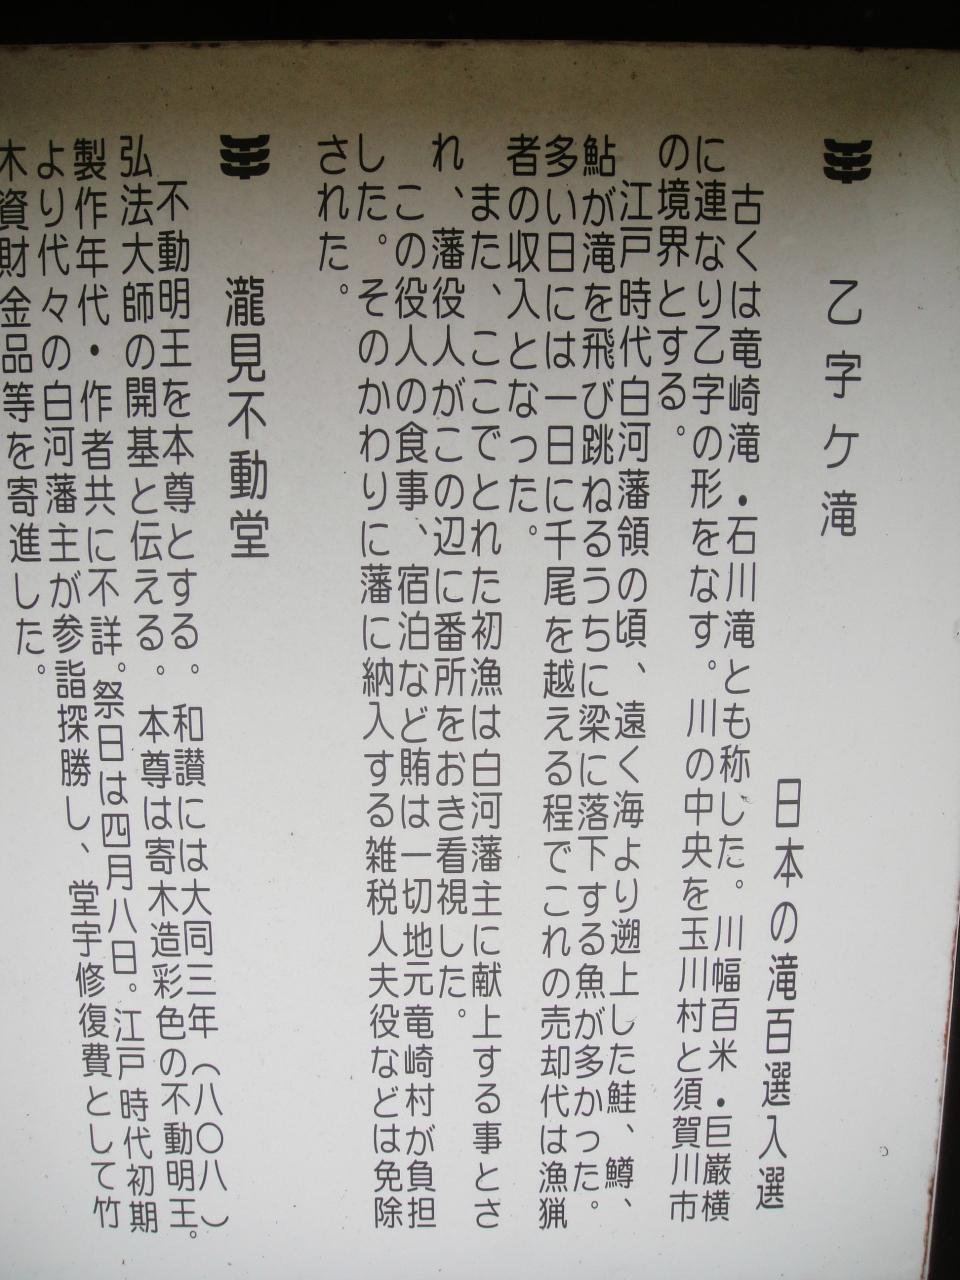 乙字ケ滝
日本の滝百選入選
古くは竜崎滝・石川滝とも称した。川幅百米・巨巌横
に連なり乙字の形をなす。川の中央を玉川村と須賀川市
の境界とする。
江戸時代白河藩領の頃、遠く海より遡上した鮭、鱒、
鮎が滝を飛び跳ねるうちに梁に落下する魚が多かった。
多い日には一日に千尾を越える程でこれの売却代は漁猟
者の収入となった。
また、ここでとれた初漁は白河藩主に献上する事とさ
れ、藩役人がこの辺に番所をおき看視した。
この役人の食事、宿泊など賄は一切地元竜崎村が負担
した。そのかわりに藩に納入する雑税人夫役などは免除
された。
瀧見不動堂
不動明王を本尊とする。和讃には大同三年（八〇八）
弘法大師の開基と伝える。本尊は寄木造彩色の不動明王。
製作年代・作者共に不詳。祭日は四月八日。江戸時代初期
より代々の白河藩主が参詣探勝し、堂宇修復費として竹
木資財金品等を寄進した。